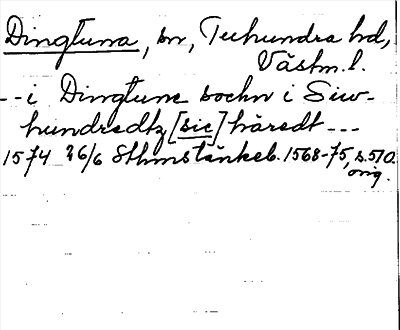 Dingtuna, sn, Tuhundra hd,
Västm. l.
-- i Dingtune sochn i Siw-
hundredtz [sic] häredt ---
1574 26/6 Sthms tänkeb. 1568-75, s. 570.
orig.